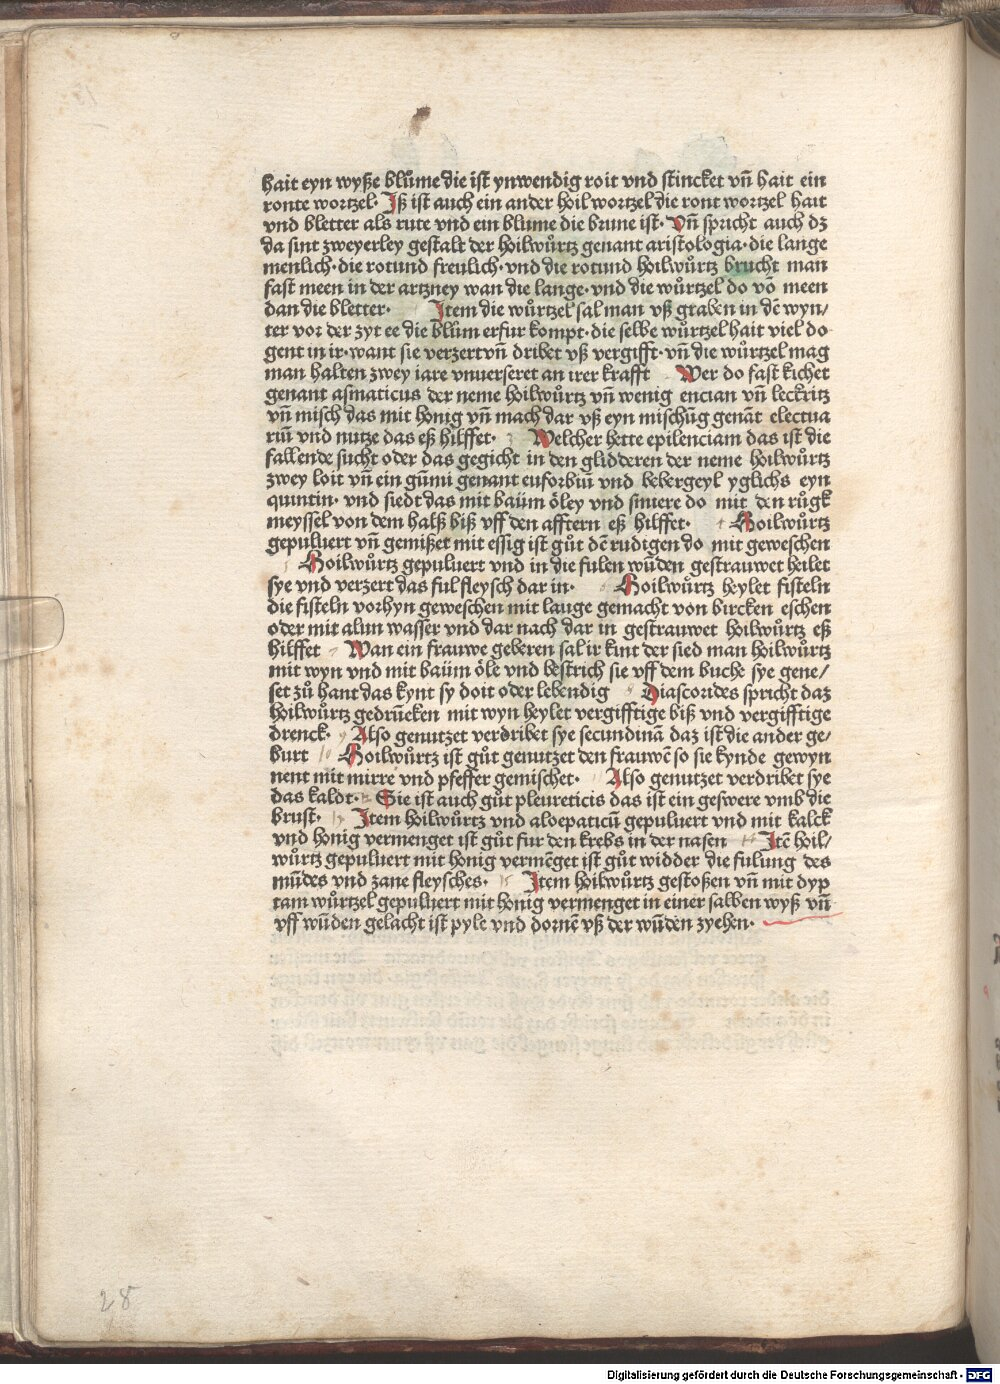 hait eyn wyße blůme die ist ynwendig roit vnd stincket vñ hait ein
ronte wortzel· Iß ist auch ein ander hoil wortzel die ront wortzel hait
vnd bletter als rute vnd ein blume die brune ist· Vñ spricht auch dz
da sint zweyerley gestalt der hoilwůrtz genant aristologia· die lange
menlich· die rotund freulich· vnd die rotund hoilwůrtz brucht man
fast meen in der artzney wan die lange· vnd die wůrtzel do vō meen
dan die bletter· Item die wůrtzel sal man vß graben in dē wyn/
ter vor der zyt ee die blům erfur kompt· die selbe wůrtzel hait viel do
gent in ir· want sie verzert vñ dribet vß vergifft· vñ die wůrtzel mag
man halten zwey iare vnuerseret an irer krafft Wer do fast kichet
genant asmaticus der neme hoilwůrtz vñ wenig encian vñ leckritz
vñ misch das mit honig vñ mach dar vß eyn mischūg genāt electua
riū vnd nutze das eß hilffet· Welcher hette epilenciam das ist die
fallende sucht oder das gegicht in den glidderen der neme hoilwůrtz
zwey loit vñ ein gūmi genant euforbiū vnd bebergeyl yglichs eyn
quintin· vnd siedt das mit baům öley vnd smiere do mit den růgk
meyssel von dem halß biß vff den afftern eß hilffet· Hoilwůrtz
gepuluert vñ gemißet mit essig ist gůt dē rudigen do mit geweschen
Hoilwůrtz gepuluert vnd in die fulen wūden gestrauwet heilet
sye vnd verzert das ful fleysch dar in· Hoilwůrtz heylet fisteln
die fisteln vorhyn geweschen mit lauge gemacht von bircken eschen
oder mit alun wasser vnd dar nach dar in gestrauwet hoilwůrtz eß
hilffet Wan ein frauwe geberen sal ir kint der sied man hoilwůrtz
mit wyn vnd mit baům öle vnd bestrich sie vff dem buche sye gene/
set zů hant das kynt sy doit oder lebendig Diascorides spricht daz
hoilwůrtz gedrūcken mit wyn heylet vergifftige biß vnd vergifftige
drenck· 9 Also genutzet verdribet sye secundinā daz ist die ander ge/
burt 10 Hoilwůrtz ist gůt genutzet den frauwē so sie kynde gewyn
nent mit mirre vnd pfeffer gemischet· Also genutzet verdribet sye
das kaldt· Sie ist auch gůt pleureticis das ist ein geswere vmb die
brust· 13 Item hoilwůrtz vnd aloepaticū gepuluert vnd mit kalck
vnd honig vermenget ist gůt fur den krebs in der nasen 14 Itē hoil/
wůrtz gepuluert mit honig vermēget ist gůt widder die fulung des
mūdes vnd zane fleysches· 15 Item hoilwůrtz gestoßen vñ mit dyp
tam wůrtzel gepuluert mit honig vermenget in einer salben wyß vñ
vff wūden gelacht ist pyle vnd dornē vß der wūden zyehen·
28
Digitalisierung gefördert durch die Deutsche Forschungsgemeinschaft - DFG